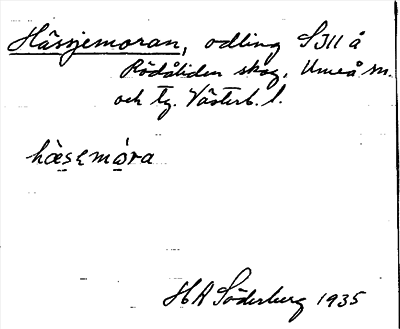 Hässjemoran, odling S311 å
Rödåliden skog, Umeå sn.
och tg. Västerb. l.
hæ̀sɛmɷ́ra
H A Söderberg 1935